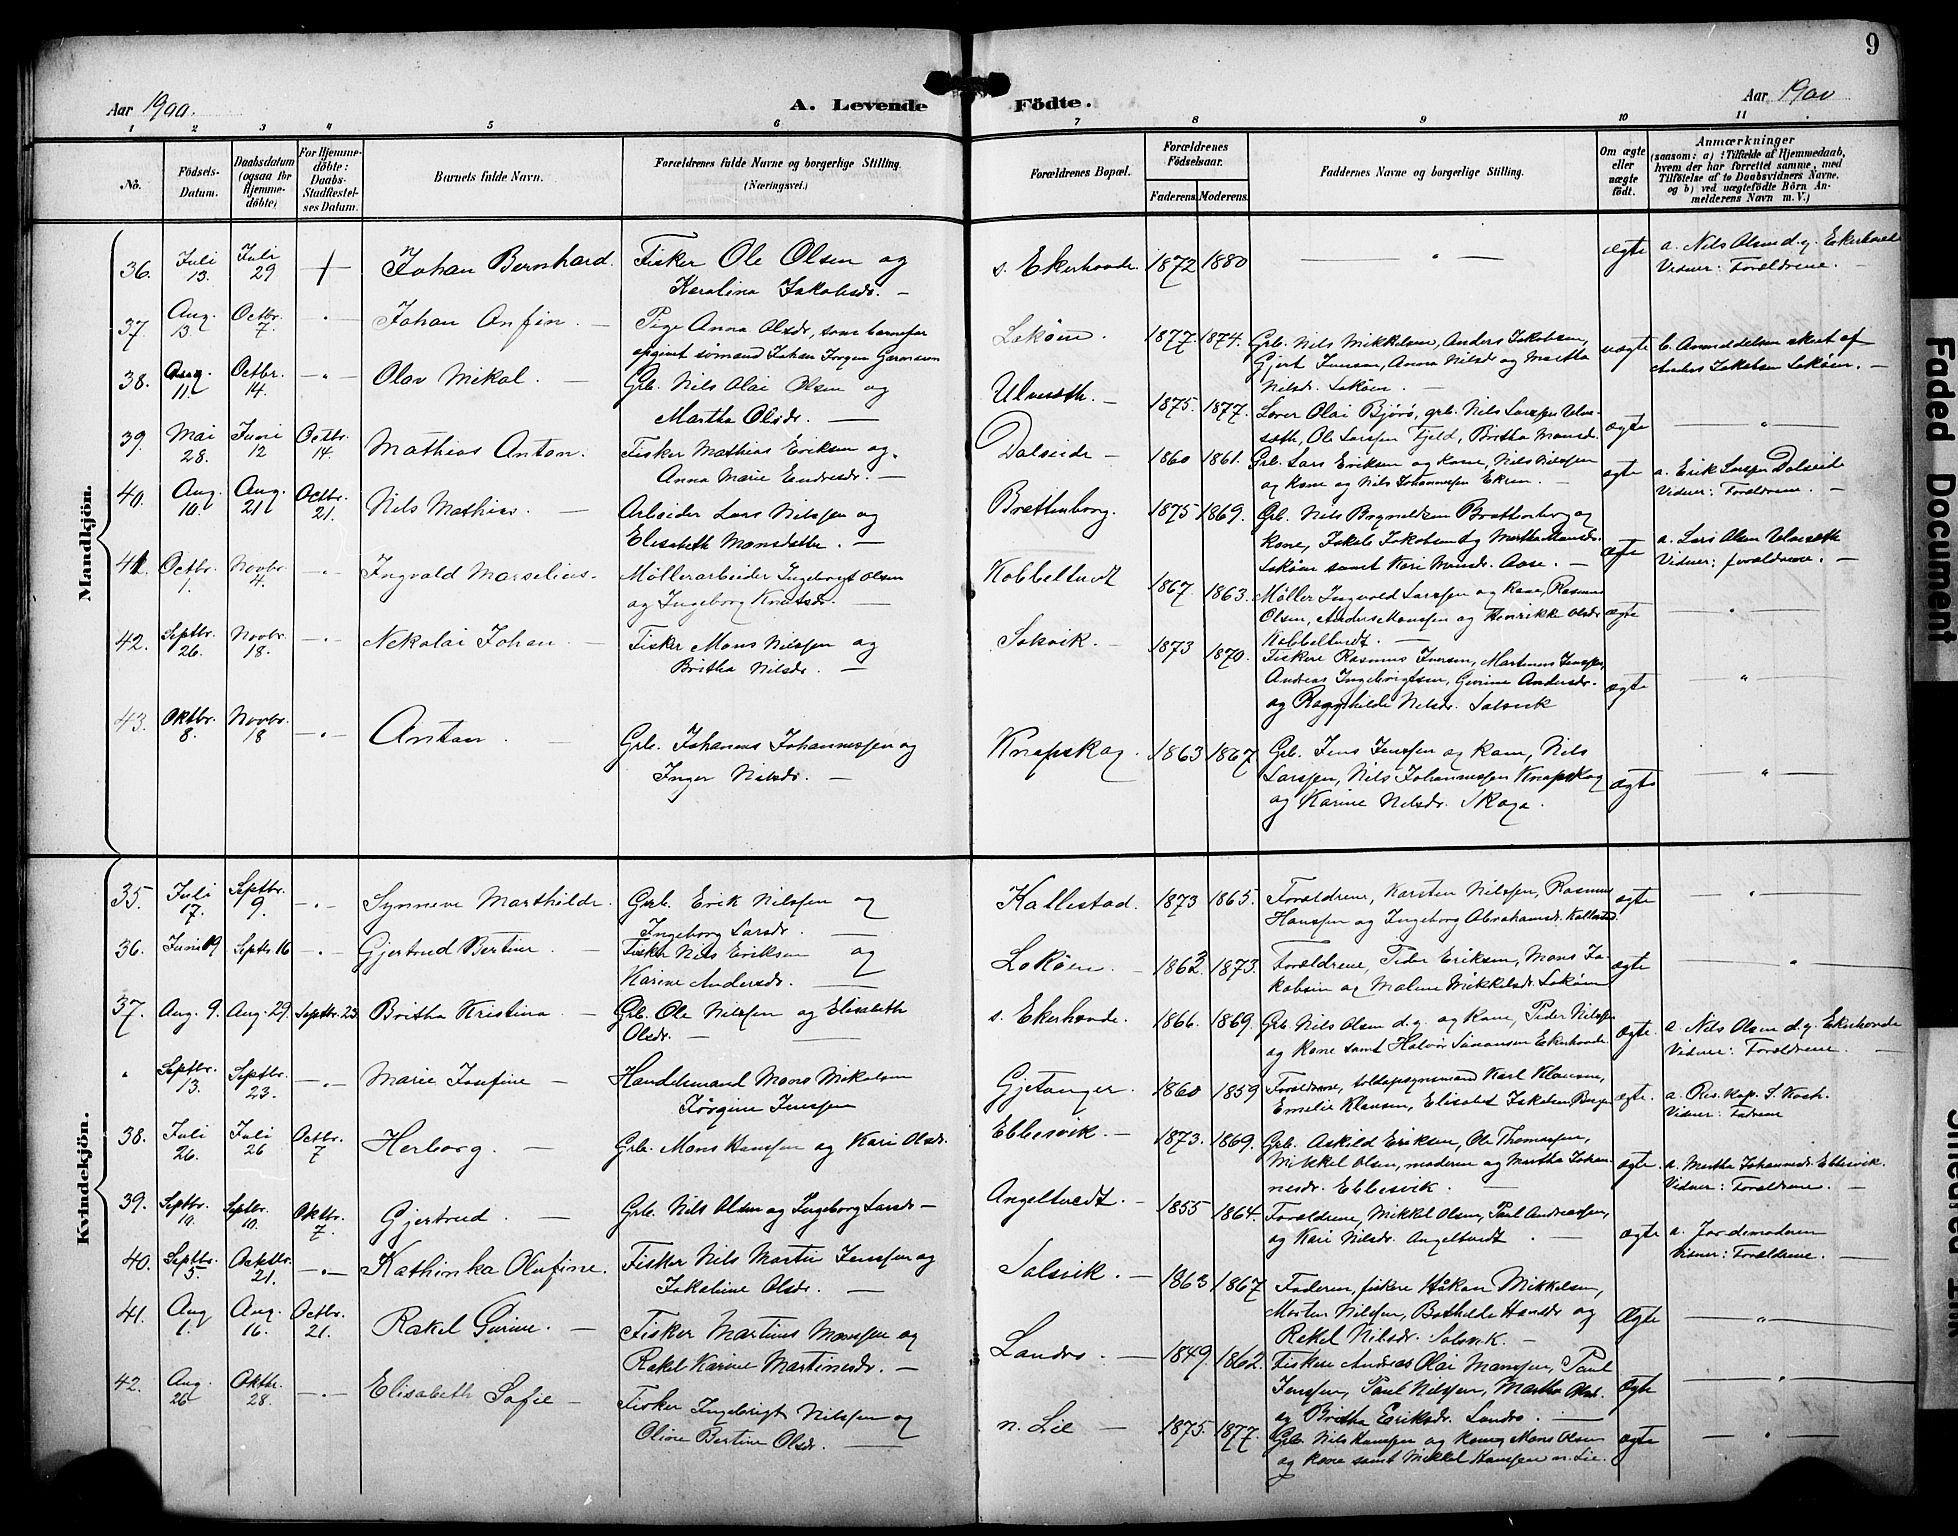 9
Aar 1900.
A. Levende Födte.
Aar 1900
1 2 3 4 5 6 7 8 9 10 11
No.
Födsels-Datum.
Daabsdatum (ogsaa for Hjemmedöbte)
For Hjemmedöbte: Daabs-Stadfæstelses Datum.
Barnets fulde Navn.
Forældrenes fulde Navne og borgerlige Stilling.
(Næringsvei.)
Forældrenes Bopæl.
Forældrenes Födselsaar.
Faderens Moderens
Faddernes Navne og borgerlige Stilling.
Om ægte eller uægte födt.
Anmærkninger
(saasom: a) i Tilfælde af Hjemmedaab, hvem der har forrettet samme, med Tilföielse af to Daabsvidners Navne, og b) ved uægtefödte Börn Anmelderens Navn m. V.)
Mandkjön.
36. Juli 13. Juli 29 + Johan Bernhard. Fisker Ole Olsen og
Karolina Jakobsdr. —
s. Ekerhovde. 1872 1880 — " — ægte a. Nils Olsen d.y. Ekerhovde
Vidner: Forældrene. —
37. Aug. 13. Octbr. 7. -"- Johan Anfin. — Pige Anna Olsdr, som barnefar
opgivet sømand Johan Jørgen Garmann
Lokøen. 1877. 1874. Grb. Nils Mikkelsen, Anders Jakobsen,
Gjert Iversen, Anna Nilsdr og Martha
Nilsdr. Lokøen. —
uægte b. Anmeldelsen skeet af
Anders Jakobsen Lokøen. —
38. Aug. 11 Octbr. 14. -"- Olav Mikal. — Grb. Nils Olai Olsen og
Martha Olsdr. —
Ulvesæth. — 1875. 1877. Lærer Olai Bjørø, grb. Nils Larssen Ulve-
sæth, Ole Larssen Fjeld, Britha Monsdr.
ægte — " —
39. Mai 28. Juni 12 Octbr. 14. Mathias Anton. Fisker Mathias Eriksen og
Anna Marie Endresdr. —
Dalseide — 1860 1861. Grb. Lars Eriksen og kone, Nils Nilssen
og kone og Nils Johannessen Ekren. —
ægte a. Erik Larssen Dalseide
Vidner: Forældrene. —
40. Aug. 10. Aug. 21 Octbr. 21. Nils Mathias. — Arbeider Lars Nilssen og
Elisabeth Monsdatter. —
Brattenborg. 1875 1869. Grb. Nils Brynildsen Brattenborg og
kone, Jakob Jakobsen og Martha Hansdr.
Lokøen samt Kari Monsdr. Aase. —
ægte a. Lars Olsen Ulvesæth
Vidner: forældrene. —
41. Octbr. 1. Novbr. 4. -"- Ingvald Marselius. Møllerarbeider Ingebrigt Olsen
og Ingeborg Knutsdr. —
Kobbeltvedt 1867. 1863. Møller Ingvald Larssen og kone, Rasmus
Olsen, Anders Monssen og Henrikke Olsdr
Kobbeltvedt. —
ægte "
42. Septbr. 26. Novbr. 18. -"- Nekolai Johan — Fisker Mons Nilssen og
Britha Nilsdr. —
Solsvik. — 1873 1870. Fiskere Rasmus Iversen, Martinus Jenssen,
Andreas Ingebrigtsen, Gurine Andersdr.
og Ragnhilde Nilsdr. Solsvik
ægte — " —
43. Oktbr. 8. Novbr. 18 -"- Anton. — Grb. Johannes Johannessen og
Inger Nilsdr. —
Knapskog. 1863 1867. Grb. Jens Jenssen og kone, Nils
Larssen, Nils Johannessen Knapskog
og Karine Nilsdr. Skoge.
ægte — " —
Kvindekjön.
35. Juli 17. Septbr. 9. -"- Synneve Marthilde. Grb. Erik Nilssen og
Ingeborg Larsdr. —
Kallestad. 1873 1865. Forældrene, Karsten Nilssen, Rasmus
Hanssen og Ingeborg Abrahamsdr. Kallestad.
ægte — " —
36. Juni 19 Septbr 16 -"- Gjertrud Bertine. — Fisker Nils Eriksen og
Karine Andersdr. —
Lokøen. — 1862 1873. Forældrene, Peder Eriksen, Mons Ja-
kobsen og Malene Mikkelsdr. Lokøen
ægte — " —
37. Aug. 9. Aug. 29. Septbr. 23 Britha Kristina. — Grb. Ole Nilssen og Elisabeth
Olsdr. —
s. Ekerhovde. 1866. 1869. Grb. Nils Olsen d.y. og kone, Peder Nilssen
og kone samt Halvor Simonsen Ekerhovde
ægte. a. Nils Olsen d.y. Ekerhovde
Vidner: Forældrene. —
" Septbr. 13. Septbr. 23. -"- Marie Josefine — Handelsmand Mons Mikalsen
Jørgine Jenssen
Gjetanger. 1860 1859 Forældrene, toldopsynsmand Karl Klausen,
Emelie Klausen, Elisabet Jakobsen Bergen
ægte. a. Res. kap. S. Koch.
Vidner: Fadrene
38. Juli 26. Juli 26 Octbr. 7 Herborg. — Grb. Mons Hanssen og Kari Olsdr.
Ebbesvik. — 1873. 1869. Grb. Askild Eriksen, Ole Thomassen,
Mikkel Olsen, moderen og Martha Johan-
nesdr. Ebbesvik. —
ægte. a. Martha Johannesdr. Ebbesvik.
Vidner: Forældrene. —
39. Septbr. 19. Septbr. 10. Oktbr. 7. Gjertrud. — Grb. Nils Olsen og Ingeborg Larsdr —
Angeltvedt. — 1855 1864. Forældrene, Mikkel Olsen, Paul Andreassen,
og Kari Nilsdr. Angeltvedt. —
ægte a. Jordemoderen
Vidner: Forældrene. —
40. Septbr. 5. Octbr. 21. -"- Kathinka Olufine. Fisker Nils Martin Jenssen og
Jakobine Olsdr. —
Solsvik. — 1863 1867 Faderen, fiskere Håkon Mikkelsen,
Morten Nilssen, Bothilde Hansdr og
Rakel Nilsdr. Solsvik. —
Ægte — " —
41. Aug 1. Aug. 16. Octbr. 21. Rakel Gurine. — Fisker Martinus Monssen og
Rakel Karine Martinesdr. —
Landro. — 1849. 1862. Fiskere Andreas Olai Monssen, Paul
Jenssen, Paul Nilssen, Martha Olsdr.
og Britha Eriksdr. Landro. —
Ægte — " —
42. Aug. 26 Oktbr. 28. -"- Elisabeth Sofie — Fisker Ingebrigt Nilssen og
Oline Bertine Olsdr. —
n. Lie — 1875. 1877. Grb. Nils Hanssen og kone, Mons Olsen
og kone samt Mikkel Hanssen n. Lie.
ægte — " —
Faded Document